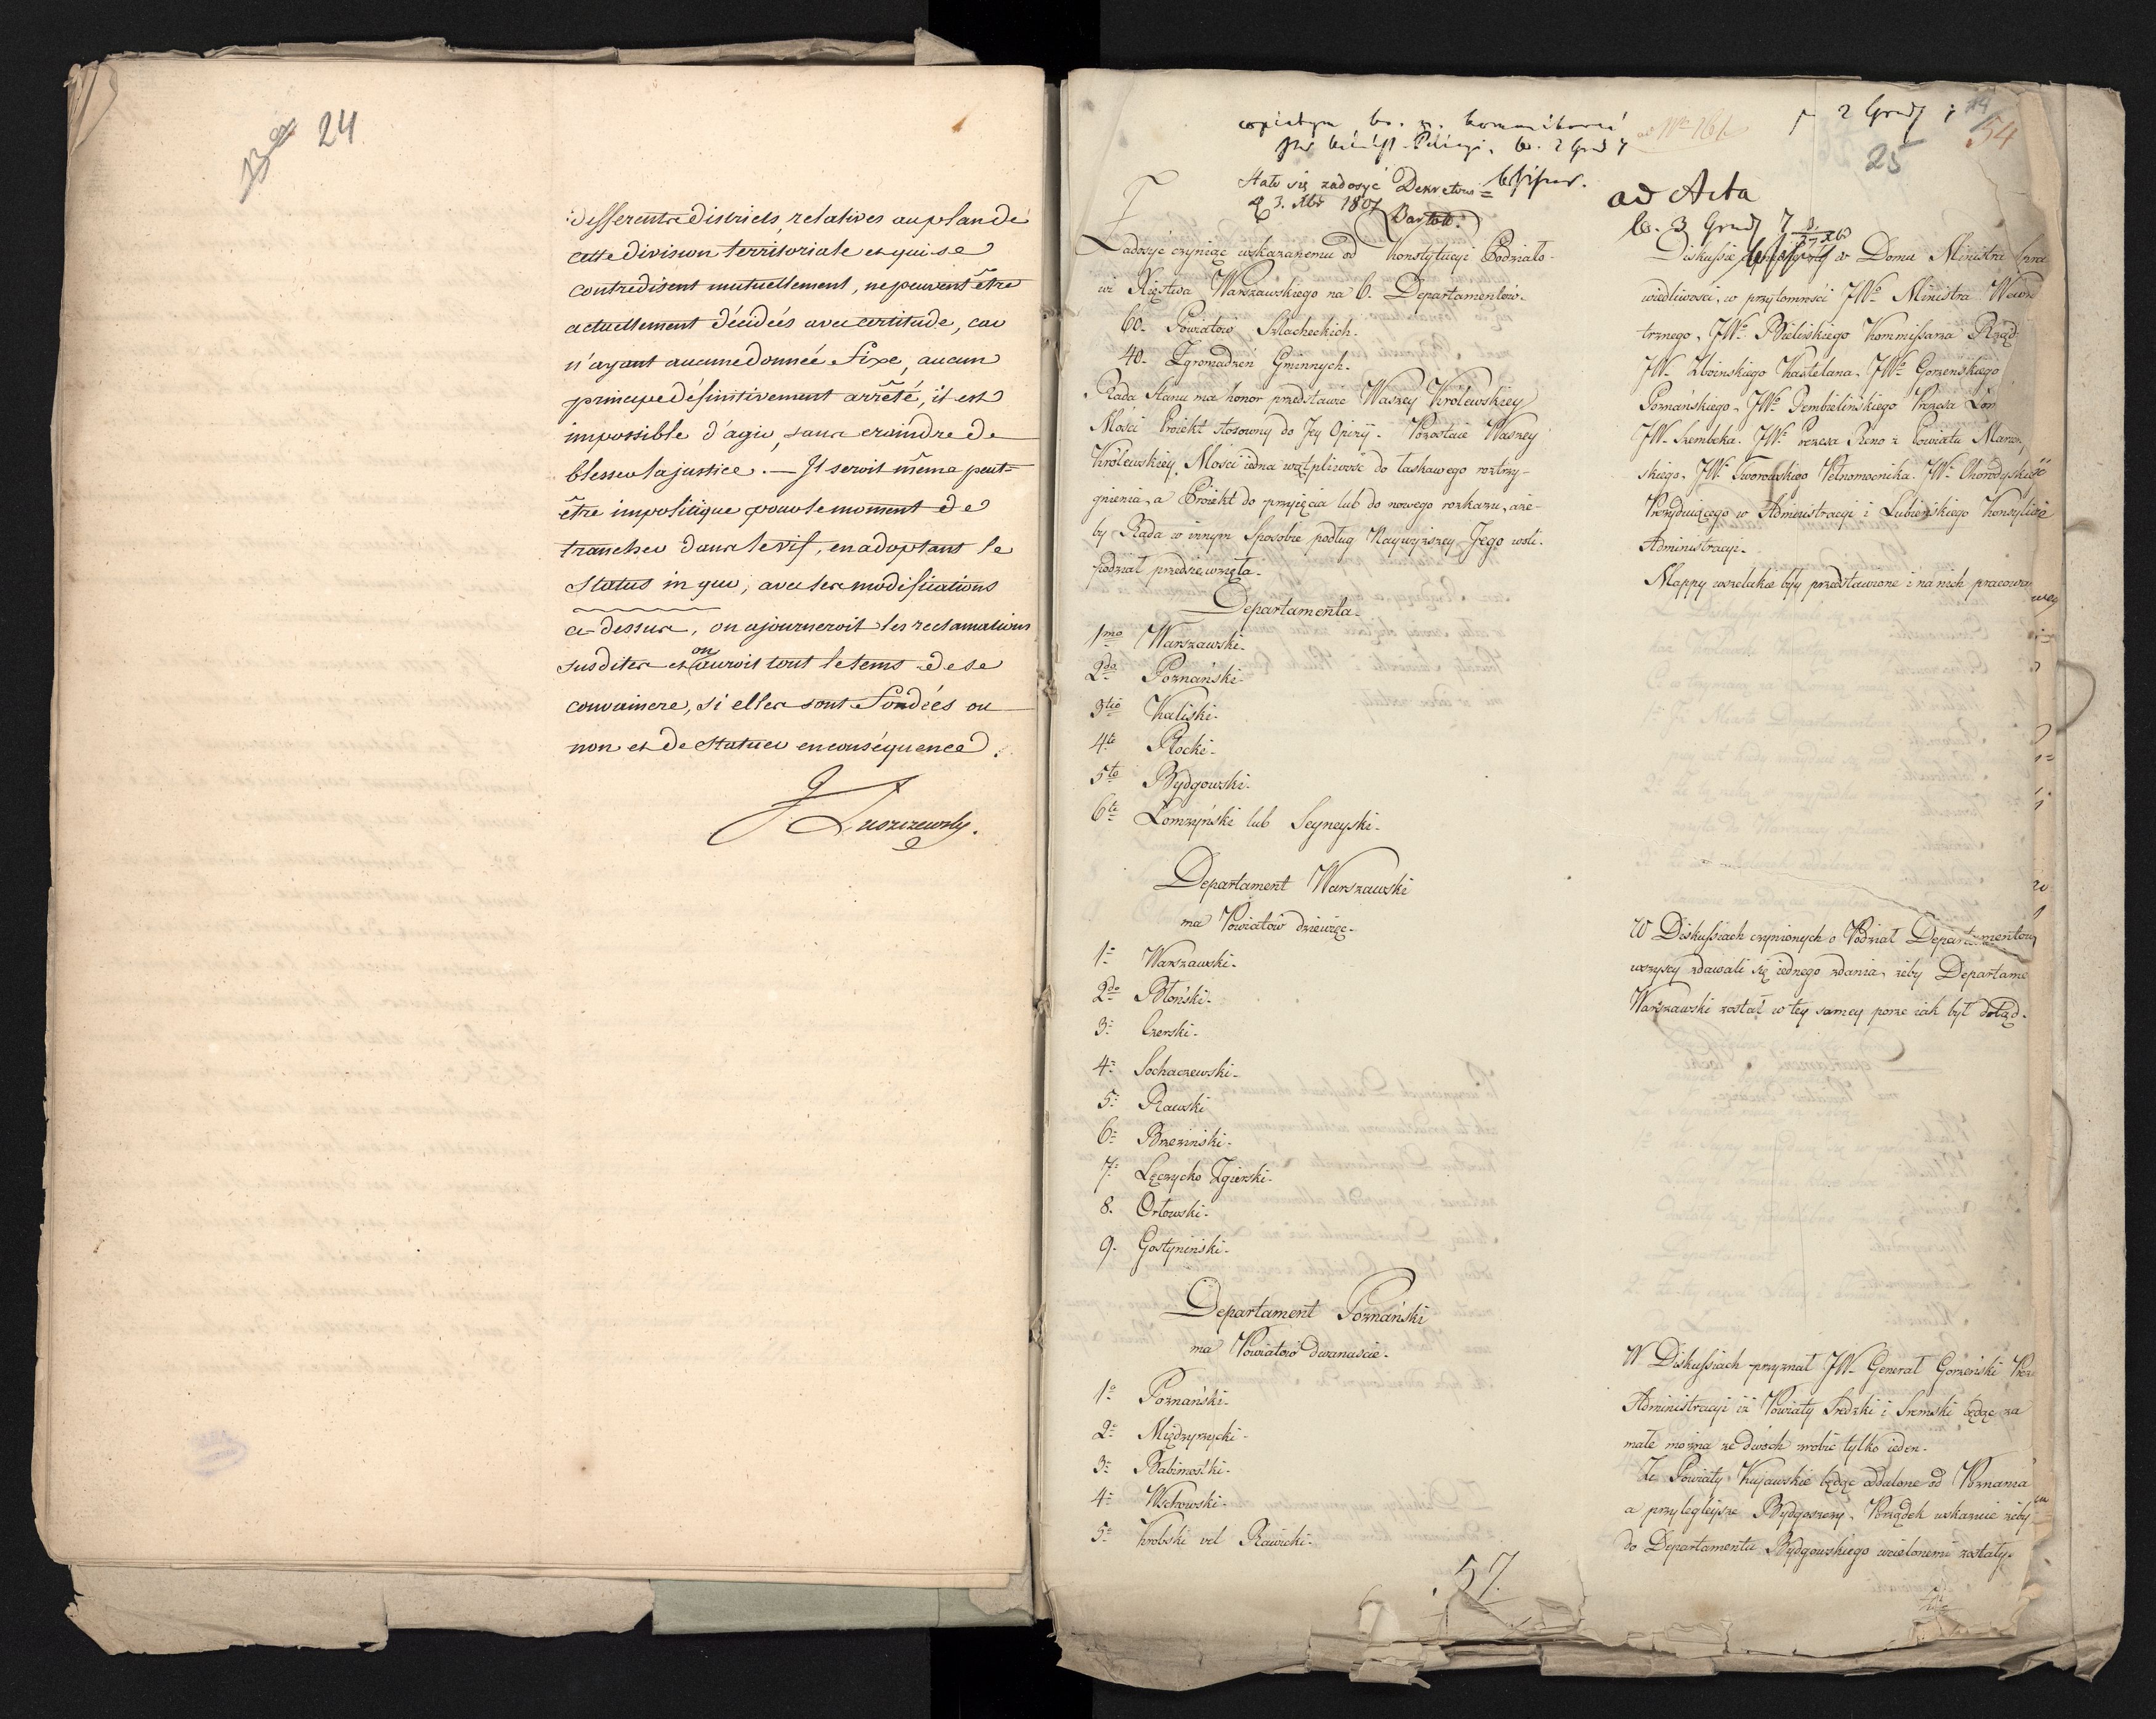 24
differents districts, relatives au plan de
cette division territoriale et qui se
contredisent mutuellement, ne peuvent être
actuellement décidées avec certitude, car
n'ayant aucune donnée fixe, aucun
principe définitivement arrêté, il est
impossible d'agir, sans craindre de
blesser la justice. — Il seroit même peut-
être impolitique pour le moment de
trancher dans le vif, en adoptant le
Status in quo, avec les modifications
ci-dessus, on ajourneroit les reclamations
susdites et on auroit tout le tems de se
convaincre, si elles sont fondées ou
non et de statuer en conséquence.
Łuszczewsky.
54
25
Stało się zadosyć Dekretowi =
d. 3. Xbr 1807
ad Acta
Zadosyć czyniąc wskazanemu od Konstytucyi Podziało-
wi Xięstwa Warszawskiego na 6. Departamentów.
60. Powiatów Szlacheckich.
40. Zgromadzeń Gminnych.
Rada Stanu ma honor przedstawić Waszey Królewskiey
Mości Proiekt stosowny do Jey Opinii. Pozostaie Waszey
Królewskiey Mości iedna wątpliwość do łaskawego roztrzy-
gnienia, a Proiekt do przyięcia lub do nowego rozkazu, aże-
by Rada w innym Sposobie podług Naywyższey Jego woli
podział przedsięwzięła.
Departamenta.
1mo Warszawski.
2do Poznański.
3tio Kaliski.
4te Płocki.
5to Bydgowski.
6te Łomżyński lub Seyneyski.
Departament Warszawski
ma Powiatów dziewięć.
1o Warszawski.
2do Błoński.
3o Czerski.
4o Sochaczewski.
5o Rawski
6o Brzeziński.
7o Łęczycko Zgierski.
8. Orłowski.
9. Gostyniński.
Departament Poznański
ma Powiatów dwanaście.
1o Poznański.
2o Międzyrzycki.
3o Babimostki.
4o Wschowski.
5o Krobski vel Rawicki.
57.
Diskussie w Domu Ministra Spra
wiedliwości, w przytomności JWo Ministra Wewn
trznego, JWo Bielińskiego Kommissarza Rząd
JW. Zboinskiego Kasztelana, JWo Gorzenskiego
Poznańskiego, JWo Rembielińskiego Prezesa Łom
JW. Szembeka. JWo Prezesa Reno z Powiatu
skiego, JW. Tworowskiego Pełnomocnika. JW.
Prezyduiącego w Administracyi i Lubieńskiego
Administracyi.
Mappy wszelakie były przedstawione i na nich pracowa
W Diskussiach czynionych o Podział Departamentów
wszyscy zdawali się iednego zdania, żeby Departame
Warszawski został w tey samey porze iak był dotąd.
W Diskussiach przyznał JW. Generał Gorzeński Prez
Administracyi iż Powiaty Sredzki i Sremski będąc za
małe można ze dwóch zrobić tylko ieden.
Że Powiaty Kujawskie będąc oddalone od Poznania
a przyległeysze Bydgoszczy, Porządek wskazuie żeby
do Departamentu Bydgowskiego wcielonemi zostały.